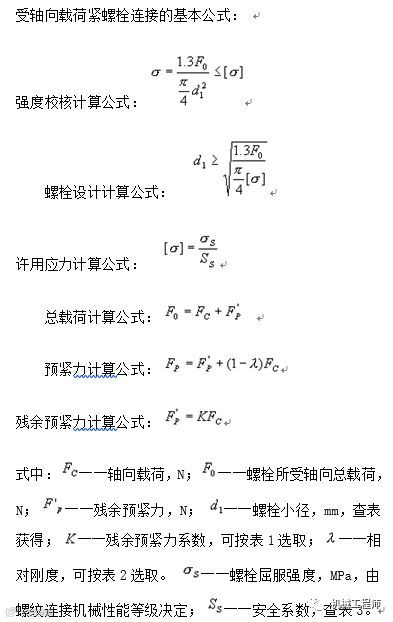 受轴向载荷紧螺栓连接的基本公式：
强度校核计算公式： σ = 1.3F₀ / (π/4 d₁²) ≤ [σ]
螺栓设计计算公式： d₁ ≥ √(1.3F₀ / (π/4 [σ]))
许用应力计算公式： [σ] = σS / SS
总载荷计算公式： F₀ = FC + F'P
预紧力计算公式： FP = F'P + (1 − λ)FC
残余预紧力计算公式： F'P = KFC
式中：FC——轴向载荷，N；F₀——螺栓所受轴向总载荷，
N；F'P——残余预紧力，N； d₁——螺栓小径，mm，查表
获得；K——残余预紧力系数，可按表1选取；λ——相
对刚度，可按表2选取。 σS——螺栓屈服强度，MPa，由
螺纹连接机械性能等级决定；SS——安全系数，查表3。
机械工程师